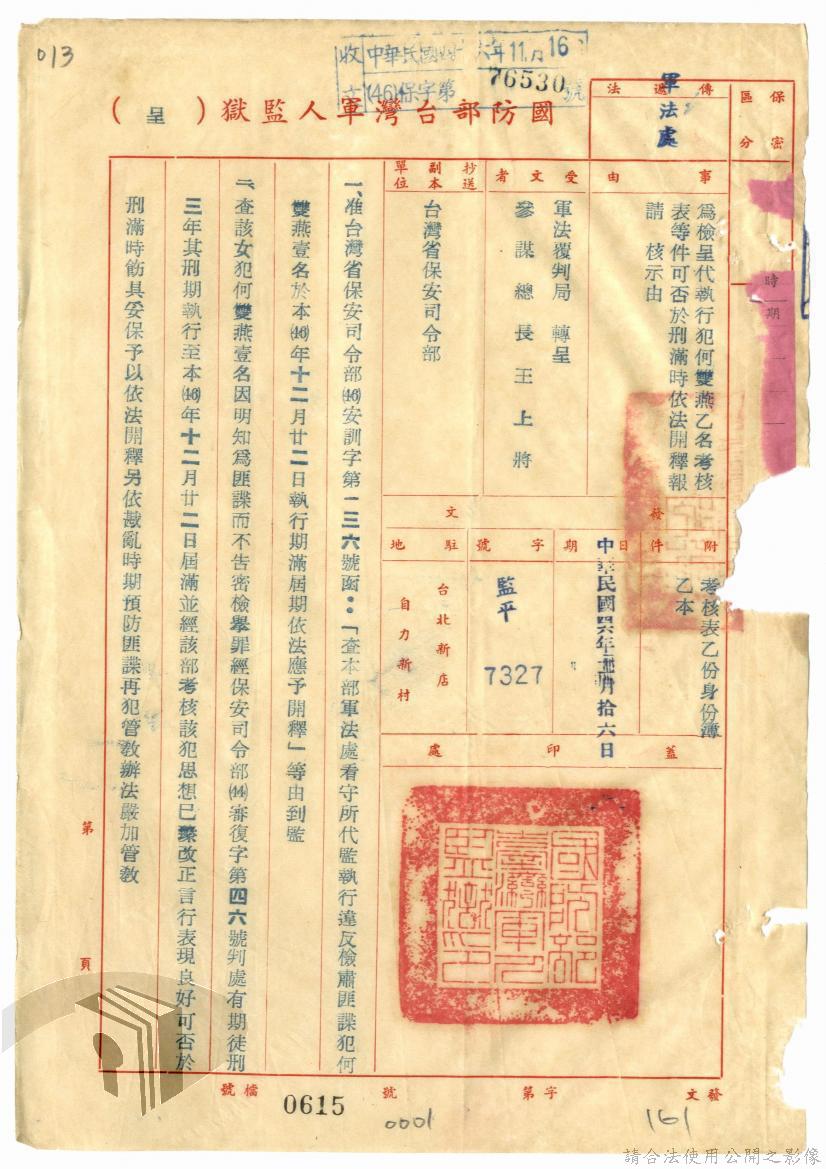 013
收文
中華民國四十六年11月16
(46)保字第76530號
國防部台灣軍人監獄（呈）
保密區分
傳遞法
軍法處
時期
事由
為檢呈代執行犯何雙燕乙名考核
表等件可否於刑滿時依法開釋報
請　核示由
受文者
軍法覆判局　轉呈
參謀總長王上將
抄送副本單位
台灣省保安司令部
發文
附件
考核表乙份身份簿
乙本
日期
中華民國四六年十一月拾六日
字號
監平
7327
駐地
台北新店
自力新村
蓋印處
國防部臺灣軍人監獄印
一、准台灣省保安司令部(46)安訓字第一三六號函：「查本部軍法處看守所代監執行違反檢肅匪諜犯何
雙燕壹名於本(46)年十二月廿二日執行期滿屆期依法應予開釋」等由到監
二、查該女犯何雙燕壹名因明知為匪諜而不告密檢舉罪經保安司令部(44)審復字第四六號判處有期徒刑
三年其刑期執行至本(46)年十二月廿二日屆滿並經該部考核該犯思想已漸改正言行表現良好可否於
刑滿時飭具妥保予以依法開釋另依戡亂時期預防匪諜再犯管教辦法嚴加管教
第　頁
發文　字第　號
檔號
0615
0001
161
請合法使用公開之影像